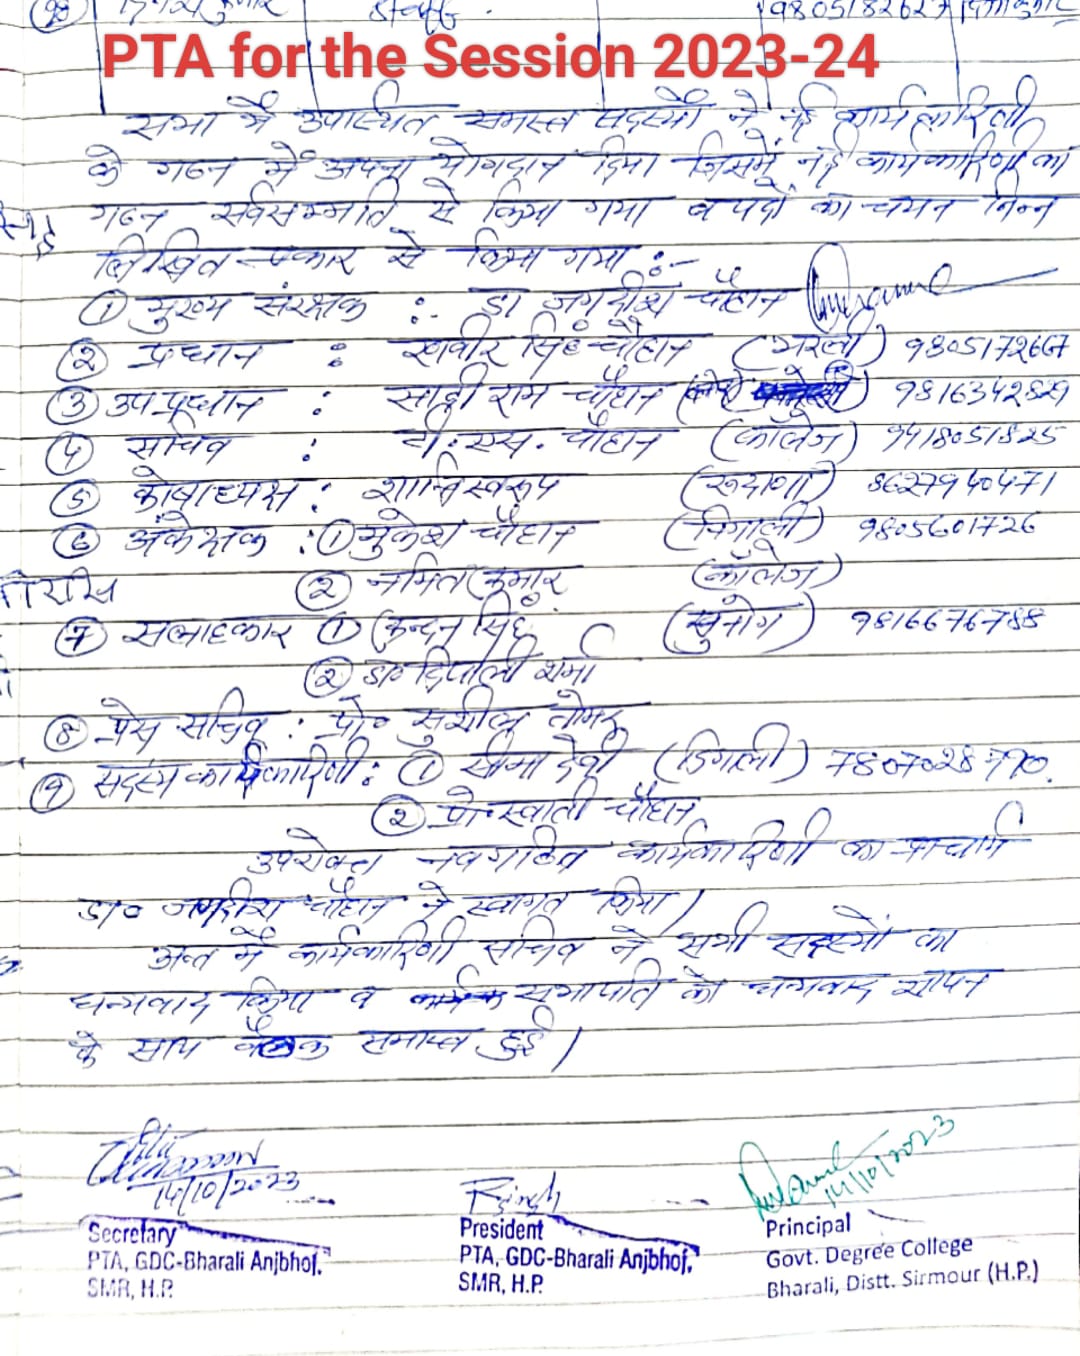 Staff. 9805182627
PTA for the Session 2023-24
सभा में उपस्थित समस्त सदस्यों ने नई कार्यकारिणी
के गठन में अपना योगदान दिया जिसमें नई कार्यकारिणी का
गठन सर्वसम्मति से किया गया व पदों का चयन निम्न
लिखित प्रकार से किया गया :-
① मुख्य संरक्षक :- डा जगदीश चौहान
② प्रधान : रणवीर सिंह चौहान (भरली) 9805172667
③ उपप्रधान : साद्दी राम चौहान 9816342829
④ सचिव : टी.एस. चौहान (कॉलेज) 9418051825
⑤ कोषाध्यक्ष : शान्तिस्वरूप 8627940471
⑥ अंकेक्षक : ① मुकेश चौहान 9805601726
② नमित कुमार (कॉलेज)
तारीख
⑦ सलाहकार ① कुन्दन सिंह (सुनोग) 9816676788
② डा० दिपाली शर्मा
⑧ प्रेस सचिव : प्रो० सुशील तोमर
⑨ सदस्य कार्यकारिणी : ① सीमा देवी (डिगली) 7807028790.
② प्रो० स्वाती चौहान
उपरोक्त नवगठित कार्यकारिणी का प्राचार्य
डा० जगदीश चौहान ने स्वागत किया।
अन्त में कार्यकारिणी सचिव ने सभी सदस्यों का
धन्यवाद किया व सभापति को धन्यवाद ज्ञापन
के साथ बैठक समाप्त हुई।
14/10/2023 RSingh 14/10/2023
Secretary President Principal
PTA, GDC-Bharali Anjbhoj. PTA, GDC-Bharali Anjbhoj. Govt. Degree College
SMR, H.P. SMR, H.P. Bharali, Distt. Sirmour (H.P.)